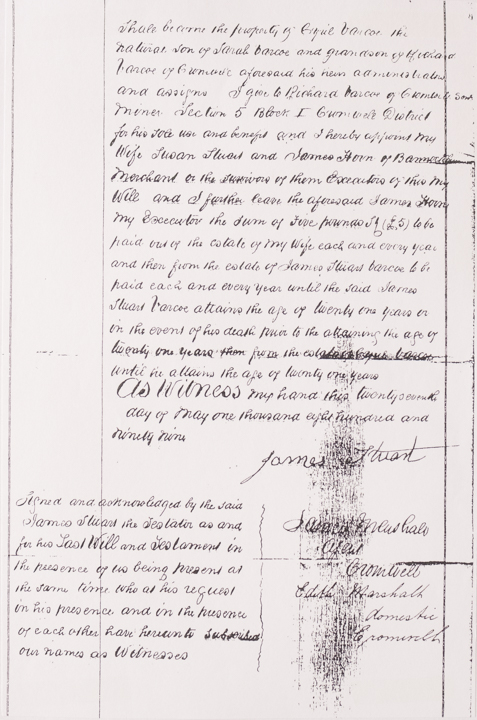 Shall become the property of Cyril Varcoe the
natural son of Sarah Varcoe and grandson of Richard
Varcoe of Cromwell aforesaid his heirs administrators
and assigns I give to Richard Varcoe of Cromwell
Miner Section 5 Block I Cromwell District
for his sole use and benefit and I hereby appoint my
Wife Susan Stuart and James Horn of Bannockburn
Merchant or the survivors of them Executors of this my
Will and I further leave the aforesaid James Horn
my Executor the sum of Five pounds (£5) to be
paid out of the estate of my Wife each and every year
and then from the estate of James Stuart Varcoe to be
paid each and every year until the said James
Stuart Varcoe attains the age of twenty one years or
in the event of his death prior to the attaining the age of
twenty one years then from the estate of Cyril Varcoe
until he attains the age of twenty one years
As Witness my hand this twenty seventh
day of May one thousand eight hundred and
ninety nine
James Stuart
Signed and acknowledged by the said
James Stuart the Testator as and
for his Last Will and Testament in
the presence of us being present at
the same time who at his request
in his presence and in the presence
of each other have hereunto subscribed
our names as Witnesses
Cromwell
Edith Marshall
domestic
Cromwell